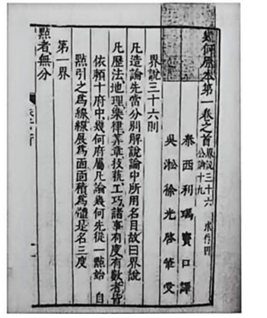 幾何原本第一卷之首 界說三十六 公論十九 求作四
泰西利瑪竇口譯
吳淞徐光啓筆受
界說三十六則
凡造論先當分別解說論中所用名目故曰界說
凡歷法地理樂律筭章技藝工巧諸事有度有數者皆
依賴十府中幾何府屬凡論幾何先從一點始自
點引之爲線線展爲面面積爲體是名三度
第一界
點者無分